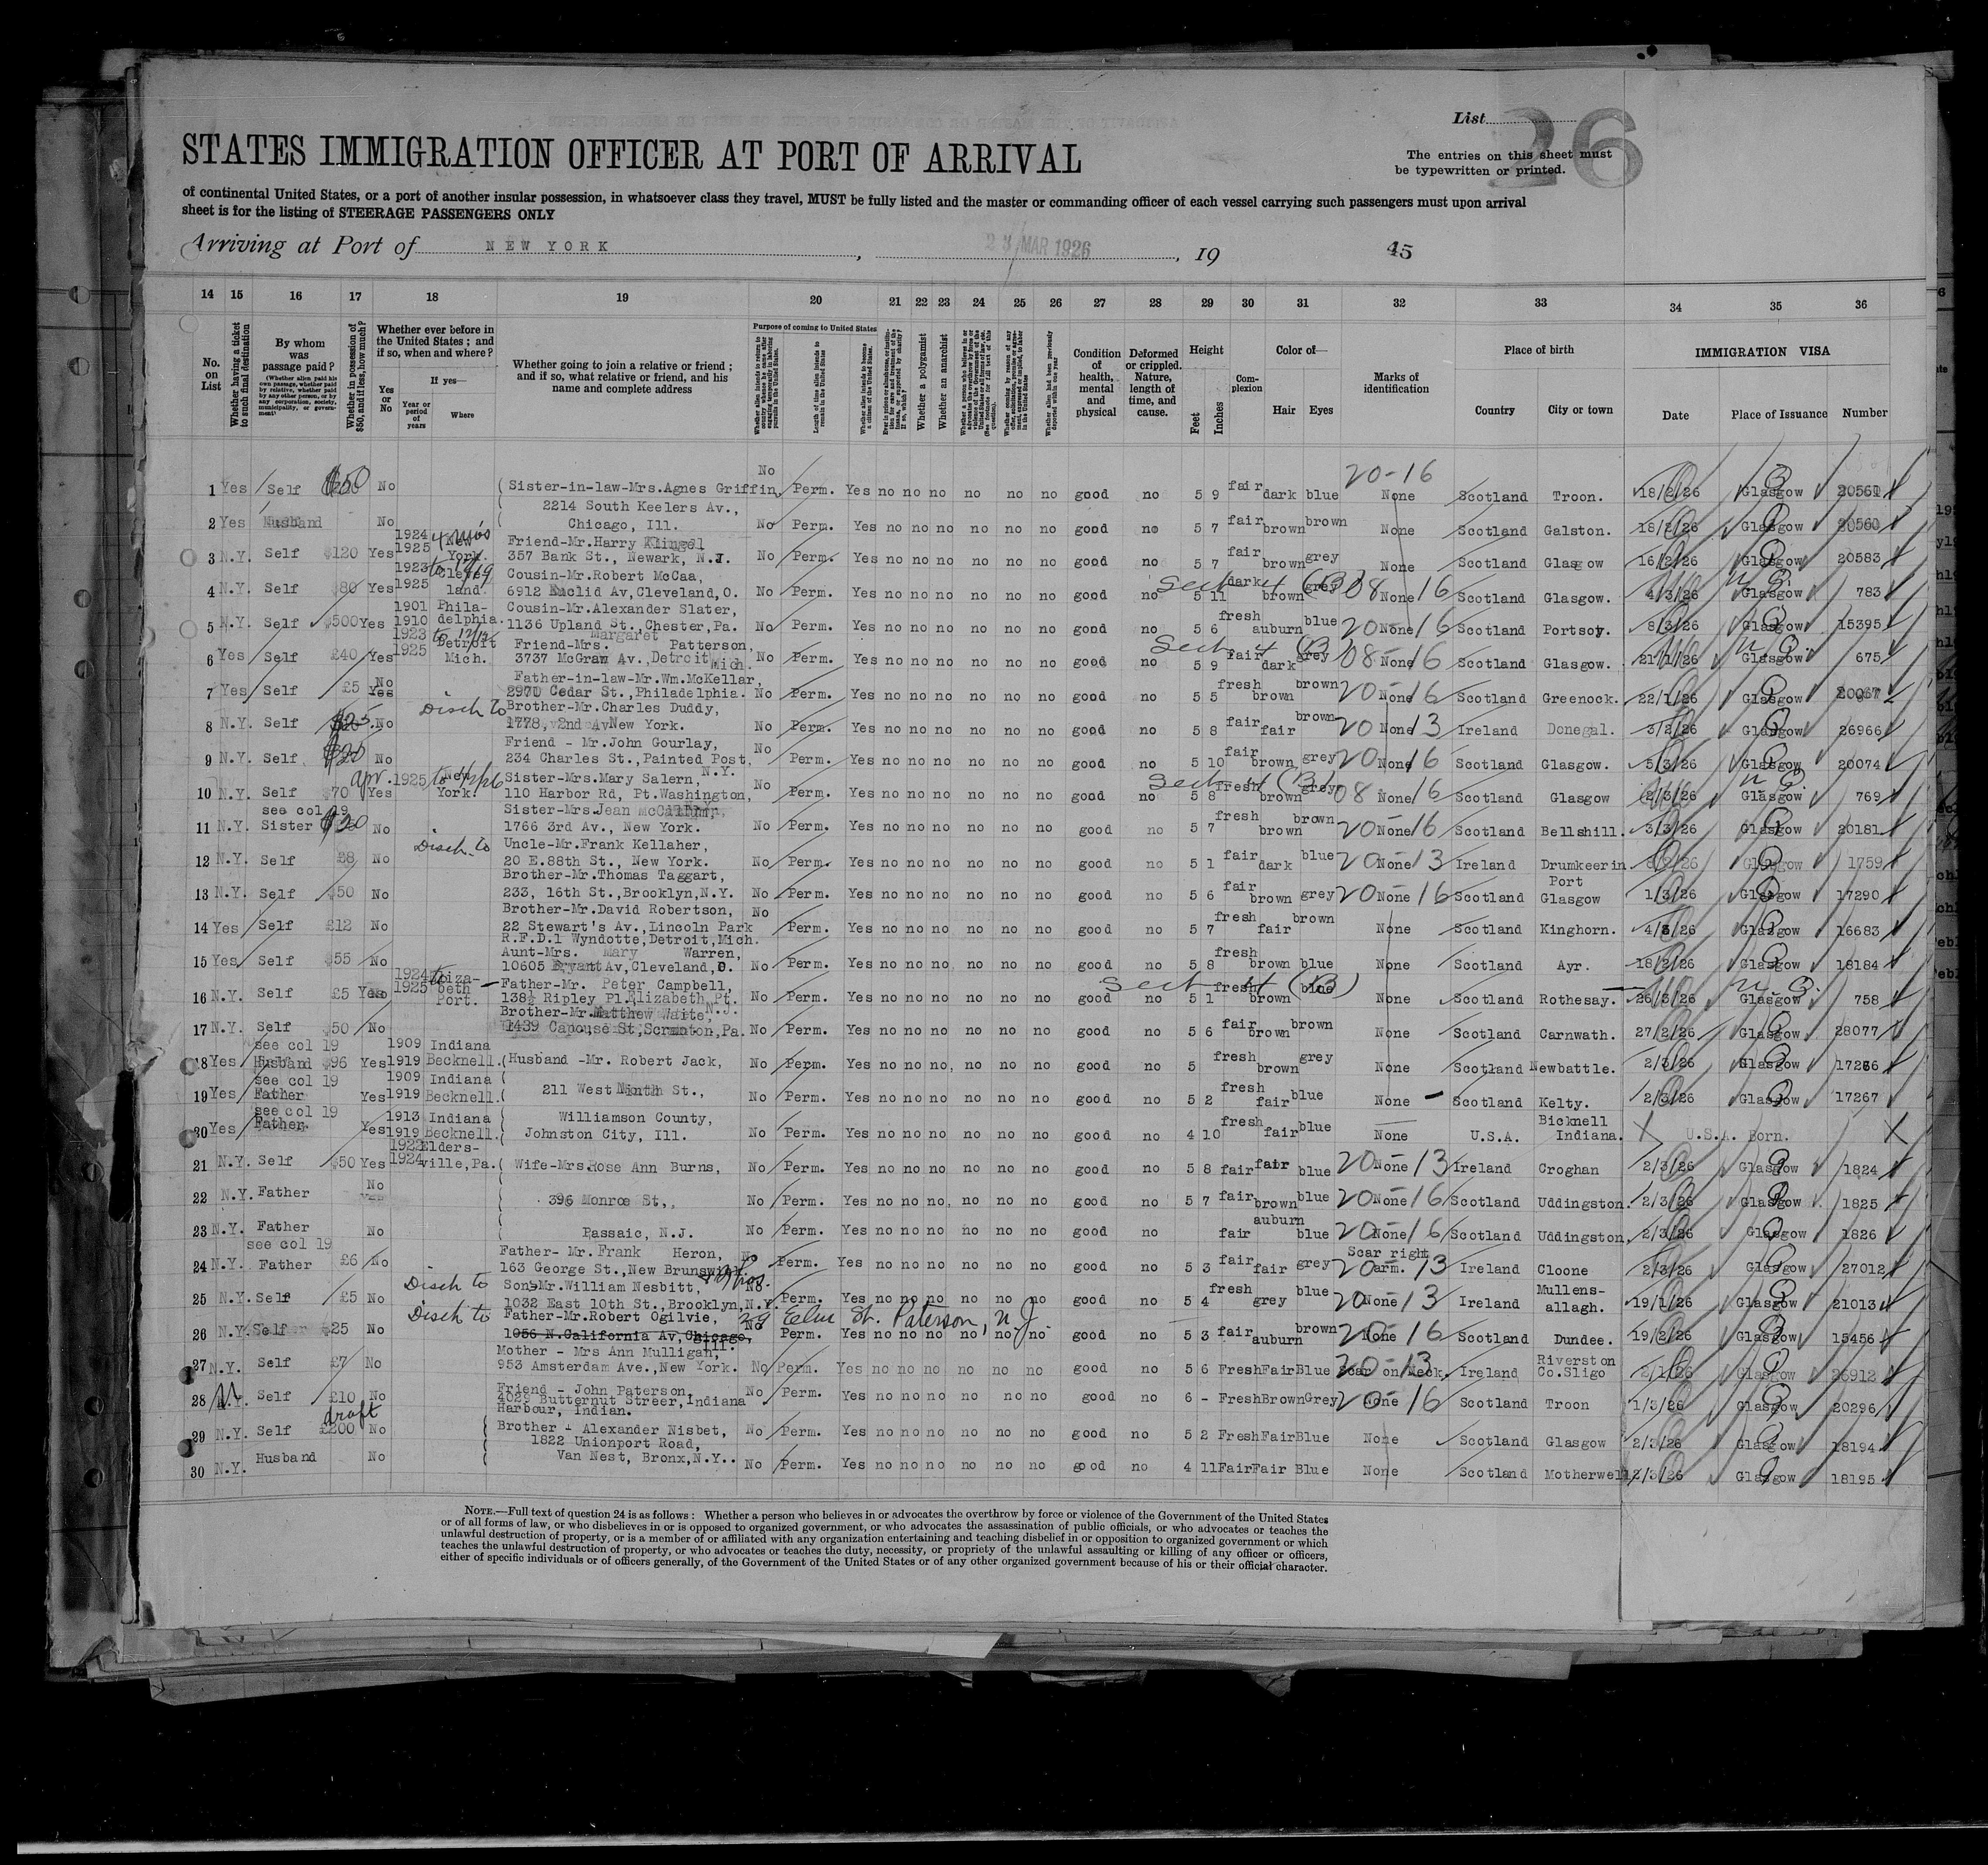 List
26
The entries on this sheet must
be typewritten or printed.
STATES IMMIGRATION OFFICER AT PORT OF ARRIVAL
of continental United States, or a port of another insular possession, in whatsoever class they travel, MUST be fully listed and the master or commanding officer of each vessel carrying such passengers must upon arrival
sheet is for the listing of STEERAGE PASSENGERS ONLY
Arriving at Port of NEW YORK, MAR 1926, 19 45
14 15 16 17 18 19 20 21 22 23 24 25 26 27 28 29 30 31 32 33 34 35 36
No. on List
Whether having a ticket to such final destination
By whom was passage paid?
Whether in possession of $50, and if less, how much?
Whether ever before in the United States; and if so, when and where?
Yes or No
If yes—
Year or period of years
Where
Whether going to join a relative or friend; and if so, what relative or friend, and his name and complete address
Purpose of coming to United States
Whether a polygamist
Whether an anarchist
Condition of health, mental and physical
Deformed or crippled. Nature, length of time, and cause.
Height
Feet
Inches
Complexion
Color of—
Hair
Eyes
Marks of identification
Place of birth
Country
City or town
IMMIGRATION VISA
Date
Place of Issuance
Number
1 Yes Self $50 No Sister-in-law-Mrs.Agnes Griffin, No Perm. Yes no no no no no no good no 5 9 fair dark blue 20-16 None Scotland Troon. 18/2/26 Glasgow 20561
2214 South Keelers Av.,
2 Yes Husband No Chicago, Ill. No Perm. Yes no no no no no no good no 5 7 fair brown brown None Scotland Galston. 18/2/26 Glasgow 20560
3 N.Y. Self $120 Yes 1924 1925 New York. Friend-Mr.Harry Klingel
357 Bank St., Newark, N.J. No Perm. Yes no no no no no no good no 5 7 fair brown grey None Scotland Glasgow 16/2/26 Glasgow 20583
4 N.Y. Self $80 Yes 1923 to 1925 Cleveland. Cousin-Mr.Robert McCaa,
6912 Euclid Av,Cleveland,O. No Perm. Yes no no no no no no good no Sect 4 (B) 5 11 dark brown grey 08 None 16 Scotland Glasgow. 4/3/26 Glasgow 783
5 N.Y. Self $500 Yes 1901 1910 Philadelphia. Cousin-Mr.Alexander Slater,
1136 Upland St.,Chester,Pa. No Perm. Yes no no no no no no good no 5 6 fresh auburn blue 20 None 16 Scotland Portsoy. 8/3/26 Glasgow 15395
6 Yes Self £40 Yes 1923 to 1925 Detroit Mich. Friend-Mrs. Margaret Patterson,
3737 McGraw Av.,Detroit Mich. No Perm. Yes no no no no no no good no Sect 4 (B) 5 9 fair dark grey 08 None 16 Scotland Glasgow. 21/1/26 Glasgow 675
7 Yes Self £5 No Yes Father-in-law-Mr.Wm.McKellar,
2970 Cedar St.,Philadelphia. No Perm. Yes no no no no no no good no 5 5 fresh brown brown 20 None 16 Scotland Greenock. 22/1/26 Glasgow 20067
8 N.Y. Self $25. No Disch to Brother-Mr.Charles Duddy,
1778, 2nd Av New York. No Perm. Yes no no no no no no good no 5 8 fair fair brown 20 None 13 Ireland Donegal. 3/2/26 Glasgow 26966
9 N.Y. Self No Friend - Mr.John Gourlay,
234 Charles St.,Painted Post, N.Y. No Perm. Yes no no no no no no good no 5 10 fair brown grey 20 None 16 Scotland Glasgow. 5/3/26 Glasgow 20074
10 N.Y. Self $70 Yes Apr. 1925 New York. Sister-Mrs.Mary Salern,
110 Harbor Rd, Pt.Washington, No Perm. Yes no no no no no no good no Sect 4 (B) 5 8 fresh brown grey 08 None 16 Scotland Glasgow 2/3/26 Glasgow 769
11 N.Y. see col 19 Sister $20 No Sister-Mrs.Jean
1766 3rd Av., New York. No Perm. Yes no no no no no no good no 5 7 fresh brown brown 20 None 16 Scotland Bellshill. 3/3/26 Glasgow 20181
12 N.Y. Self £8 No Disch. to Uncle-Mr.Frank Kellaher,
20 E.88th St., New York. No Perm. Yes no no no no no no good no 5 1 fair dark blue 20 None 13 Ireland Drumkeerin 8/2/26 Glasgow 1759
13 N.Y. Self $50 No Brother-Mr.Thomas Taggart,
233, 16th St.,Brooklyn,N.Y. No Perm. Yes no no no no no no good no 5 6 fair brown grey 20 None 16 Scotland Port Glasgow 1/3/26 Glasgow 17290
14 Yes Self £12 No Brother-Mr.David Robertson,
22 Stewart's Av.,Lincoln Park
R.F.D.1 Wyndotte,Detroit,Mich. No Perm. Yes no no no no no no good no 5 7 fresh fair brown None Scotland Kinghorn. 4/3/26 Glasgow 16683
15 Yes Self $55 No Aunt-Mrs. Mary Warren,
10605 Bryant Av,Cleveland,O. No Perm. Yes no no no no no no good no 5 8 fresh brown blue None Scotland Ayr. 18/2/26 Glasgow 18184
16 N.Y. Self £5 Yes 1924 to 1925 Elizabeth Port. Father-Mr. Peter Campbell,
138½ Ripley Pl.Elizabeth Pt. N.J. No Perm. Yes no no no no no no good no Sect 4 (B) 5 1 fresh brown blue None Scotland Rothesay. 26/3/26 Glasgow 758
17 N.Y. Self $50 No Brother-Mr.Matthew Waite,
1439 Capouse St,Scranton,Pa. No Perm. Yes no no no no no no good no 5 6 fair brown brown None Scotland Carnwath. 27/2/26 Glasgow 28077
18 Yes see col 19 Husband $96 Yes 1909 1919 Indiana Becknell. Husband -Mr. Robert Jack, No Perm. Yes no no no no no no good no 5 fresh brown grey None Scotland Newbattle. 2/3/26 Glasgow 17266
19 Yes see col 19 Father Yes 1909 1919 Indiana Becknell. 211 West Ninth St., No Perm. Yes no no no no no no good no 5 2 fresh fair blue None Scotland Kelty. 2/3/26 Glasgow 17267
Williamson County,
20 Yes see col 19 Father. Yes 1913 1919 Indiana Becknell. Johnston City, Ill. No Perm. Yes no no no no no no good no 4 10 fresh fair blue None U.S.A. Bicknell Indiana. X U.S.A. Born. X
21 N.Y. Self $50 Yes 1922 1924 Eldersville,Pa. Wife-Mrs.Rose Ann Burns, No Perm. Yes no no no no no no good no 5 8 fair fair blue 20 None 13 Ireland Croghan 2/3/26 Glasgow 1824
22 N.Y. Father No 396 Monroe St., No Perm. Yes no no no no no no good no 5 7 fair brown blue 20 None 16 Scotland Uddingston. 2/3/26 Glasgow 1825
23 N.Y. Father No Passaic, N.J. No Perm. Yes no no no no no no good no fair auburn blue 20 None 16 Scotland Uddingston, 2/3/26 Glasgow 1826
24 N.Y. see col 19 Father £6 No Father- Mr. Frank Heron,
163 George St.,New Brunswick. No Perm. Yes no no no no no no good no 5 3 fair fair grey Scar right arm. 20 13 Ireland Cloone 2/3/26 Glasgow 27012
25 N.Y. Self £5 No Disch to Son-Mr.William Nesbitt,
1032 East 10th St.,Brooklyn,N.Y. No Perm. Yes no no no no no no good no 5 4 fresh grey blue 20 None 13 Ireland Mullensallagh. 19/1/26 Glasgow 21013
26 N.Y. Self $25 No Disch to Father-Mr.Robert Ogilvie, 29 Elm St. Paterson, N.J.
1056 N.California Av,Chicago, Ill. No Perm. Yes no no no no no no good no 5 3 fair auburn brown 20 None 16 Scotland Dundee. 19/2/26 Glasgow 15456
27 N.Y. Self £7 No Mother - Mrs Ann Mulligan,
953 Amsterdam Ave.,New York. No Perm. Yes no no no no no no good no 5 6 Fresh Fair Blue 20-13 Scar on Neck. Ireland Riverston Co.Sligo 2/1/26 Glasgow 26912
28 N.Y. Self £10 No Friend - John Paterson,
4029 Butternut Streer,Indiana
Harbour, Indian. No Perm. Yes no no no no no no good no 6 - Fresh Brown Grey 20 None 16 Scotland Troon 1/3/26 Glasgow 20296
29 N.Y. Self draft £200 No Brother - Alexander Nisbet, No Perm. Yes no no no no no no good no 5 2 Fresh Fair Blue None Scotland Glasgow 2/3/26 Glasgow 18194
1822 Unionport Road,
30 N.Y. Husband No Van Nest, Bronx,N.Y.. No Perm. Yes no no no no no no good no 4 11 Fair Fair Blue None Scotland Motherwell 2/3/26 Glasgow 18195
NOTE.—Full text of question 24 is as follows: Whether a person who believes in or advocates the overthrow by force or violence of the Government of the United States
or of all forms of law, or who disbelieves in or is opposed to organized government, or who advocates the assassination of public officials, or who advocates or teaches the
unlawful destruction of property, or is a member of or affiliated with any organization entertaining and teaching disbelief in or opposition to organized government or which
teaches the unlawful destruction of property, or who advocates or teaches the duty, necessity, or propriety of the unlawful assaulting or killing of any officer or officers,
either of specific individuals or of officers generally, of the Government of the United States or of any other organized government because of his or their official character.